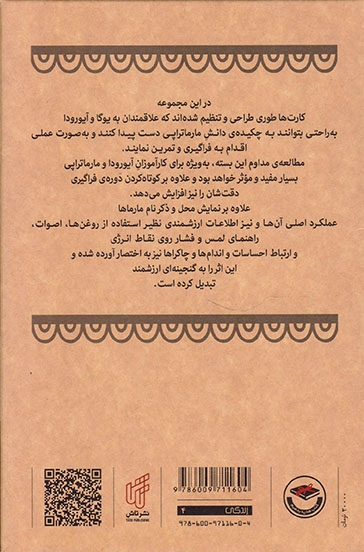 در این مجموعه
کارت‌ها طوری طراحی و تنظیم شده‌اند که علاقمندان به یوگا و آیورودا
به‌راحتی بتوانند به چکیده‌ی دانش مارماتراپی دست پیدا کنند و به‌صورت عملی
اقدام به فراگیری و تمرین نمایند.
مطالعه‌ی مداوم این بسته، به‌ویژه برای کارآموزان آیورودا و مارماتراپی
بسیار مفید و مؤثر خواهد بود و علاوه بر کوتاه‌کردن دوره‌ی فراگیری
دقت‌شان را نیز افزایش می‌دهد.
علاوه بر نمایش محل و ذکر نام مارماها
عملکرد اصلی آن‌ها و نیز اطلاعات ارزشمندی نظیر استفاده از روغن‌ها، اصوات،
راهنمای لمس و فشار روی نقاط انرژی
و ارتباط احساسات و اندام‌ها و چاکراها نیز به اختصار آورده شده و
این اثر را به گنجینه‌ای ارزشمند
تبدیل کرده است.
نشر تاش
TASH PUBLISHING
9 786009 711604
۴
۹۷۸-۶۰۰-۹۷۱۱۶-۰-۴
تومان